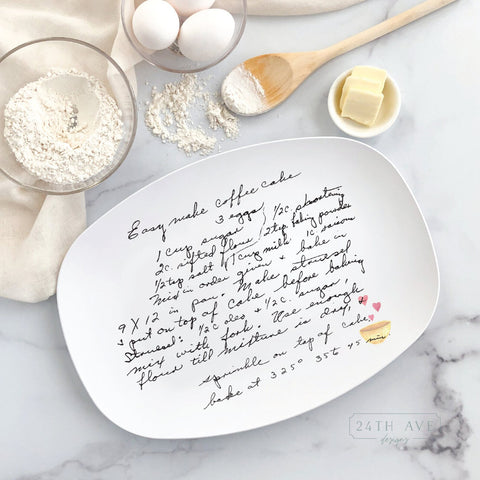 Easy make coffee cake
3 eggs
1 cup sugar 1/2 c. shortening
2 c. sifted flour 2 tsp baking powder
1/2 tsp salt 1 cup milk 1 c. raisins
Mix in order given & bake in
9 X 12 in pan. Make streusel
& put on top of cake before baking
Streusel: 1/2 c. oleo & 1/2 c. sugar,
mix with fork. Use enough
flour till mixture is dry, &
sprinkle on top of cake,
bake at 325° 35 to 45 min.
24TH AVE
designs